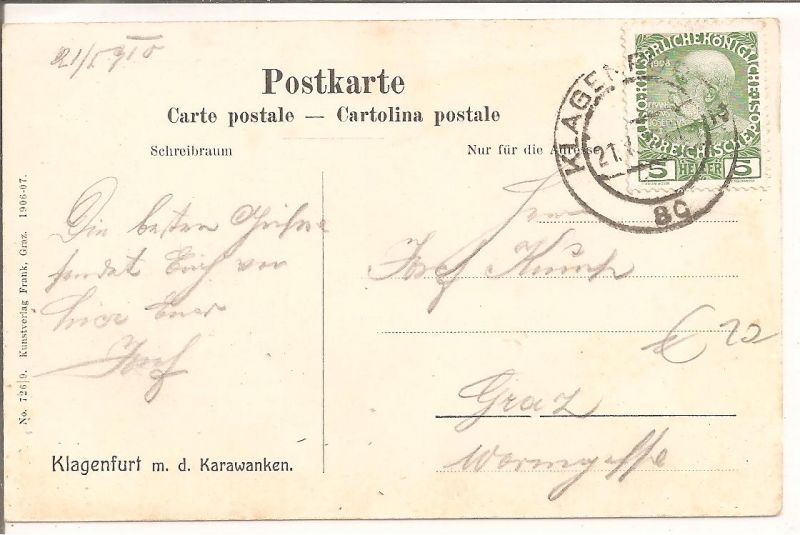 21/5 910
Postkarte
Carte postale — Cartolina postale
Schreibraum
Nur für die Adresse
KLAGENFURT
21.
8c
1908
KAISERLICHE KÖNIGLICHE ÖSTERREICHISCHE
5 HELLER 5
Die besten Grüsse
sendet Euch von
hier Euer
Josef
Josef
€ 20
Graz
Wormgasse
Klagenfurt m. d. Karawanken.
No. 726|9. Kunstverlag Frank, Graz. 1906-07.